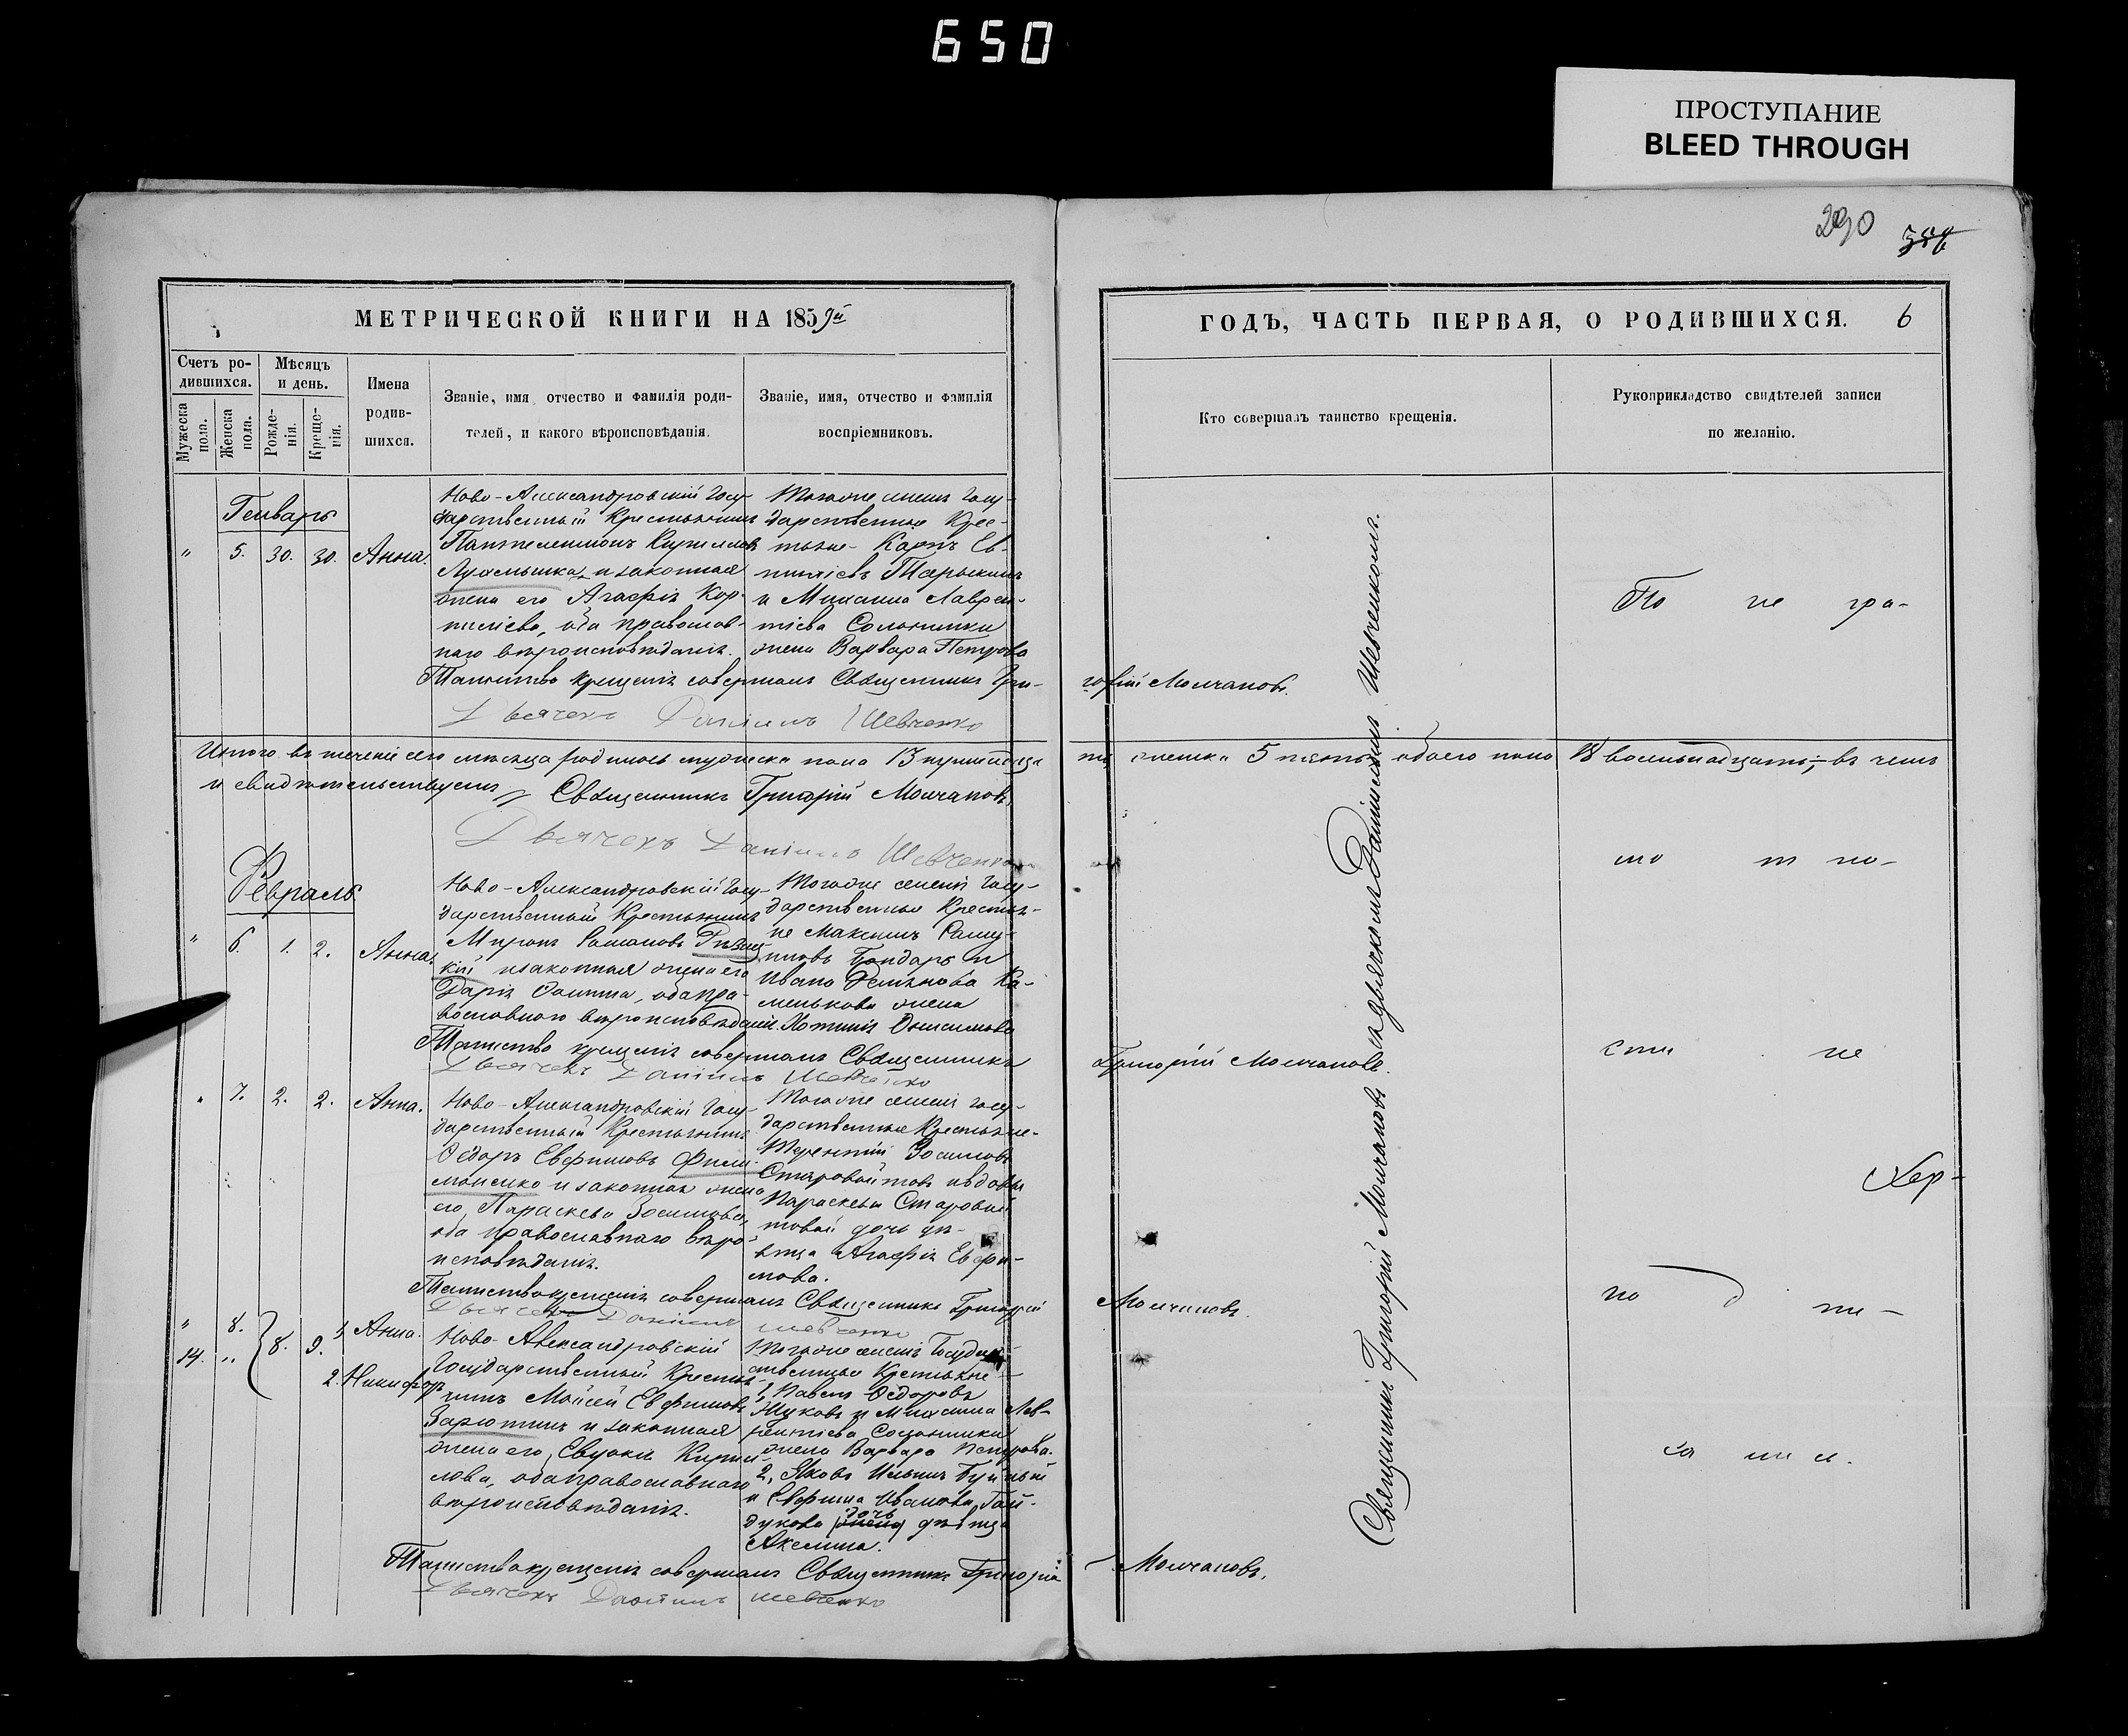 650
ПРОСТУПАНИЕ
BLEED THROUGH
290
МЕТРИЧЕСКОЙ КНИГИ НА 1859й
ГОДЪ, ЧАСТЬ ПЕРВАЯ, О РОДИВШИХСЯ. 6
Счетъ ро-
дившихся.
Мужеска пола.
Женска пола.
Мѣсяцъ
и день.
Рожде-
нія.
Креще-
нія.
Имена
родив-
шихся.
Званіе, имя отчество и фамилія роди-
телей, и какого вѣроисповѣданія.
Званіе, имя, отчество и фамилія
воспріемниковъ.
Кто совершалъ таинство крещенія.
Рукоприкладство свидѣтелей записи
по желанію.
Генварь
" 5. 30. 30. Анна.
Ново-Александровскій Госу-
дарственный Крестьянинъ
Пантелеимонъ Кирилловъ
и законная
жена его Агафія Кор-
нилієва, оба православ-
наго вѣроисповѣданія.
Тогоже селенія Госу-
дарственные Крес-
тьяне Карпъ Ев-
и Михаила Лаврен-
тіева
жена Варвара Петрова
Таинство крещенія совершалъ Священникъ Гри-
горій Молчановъ.
Дьячекъ Даніилъ Шевченко
Итого въ теченіе сего мѣсяца родилось мужеска пола 13 тринадца
ть женска 5 пять обоего пола 18 восемнадцать; въ чемъ
и свидѣтельствуемъ Священникъ Григорій Молчановъ
Дьячекъ Даніилъ Шевченко
Февраль
" 6. 1. 2. Анна.
Ново-Александровскій Госу-
дарственный Крестьянинъ
Миронъ Романовъ
кій и законная жена его
Дарія оба пра-
вославнаго вѣроисповѣданія.
Тогоже селенія Госу-
дарственные Крестья-
не Максимъ
Бондарь и
Ивана Демьянова Ка-
менькова жена
Хотинія Онисимова
Таинство крещенія совершалъ Священникъ
Григорій Молчановъ.
Дьячекъ Даніилъ Шевченко
" 7. 2. 2. Анна.
Ново-Александровскій Госу-
дарственный Крестьянинъ
Ѳедоръ Евфимовъ Фили-
моненко и законная жена
его, Параскева Зосимова,
оба православнаго вѣро-
исповѣданія.
Тогоже селенія Госу-
дарственные Крестьяне-
Терентій Зосимовъ
Старовойтовъ и вдовы
Параскевы Старовой-
товой дочь дѣ-
вица Агафія Евфи-
мова.
Таинство крещенія совершалъ Священникъ Григорій
Молчановъ.
Дьячекъ Даніилъ Шевченко
" 8. 8. 9. 1. Анна.
14. " 2. Никифоръ
Ново-Александровскій
Государственный Крестья-
нинъ Моисей Евфимовъ
Зарютинъ и законная
жена его, Евдокія Кирил-
лова, оба православнаго
вѣроисповѣданія.
Тогоже селенія Государ-
ственные Крестьяне
1, Павелъ Ѳедоровъ
Жуковъ и Михаила Лав-
рентіева
жена Варвара Петрова.
2, Яковъ Ильинъ Буйный
и Евфима Иванова Гай-
дукова дочь дѣвица
Акелина.
Таинство крещенія совершалъ Священникъ Григорій
Молчановъ.
Дьячекъ Даніилъ Шевченко
Священникъ Григорій Молчановъ съ дьячкомъ Данииломъ Шевченкомъ.
По не гра-
мо т но-
сти не
Хер-
по д пи-
са ны.